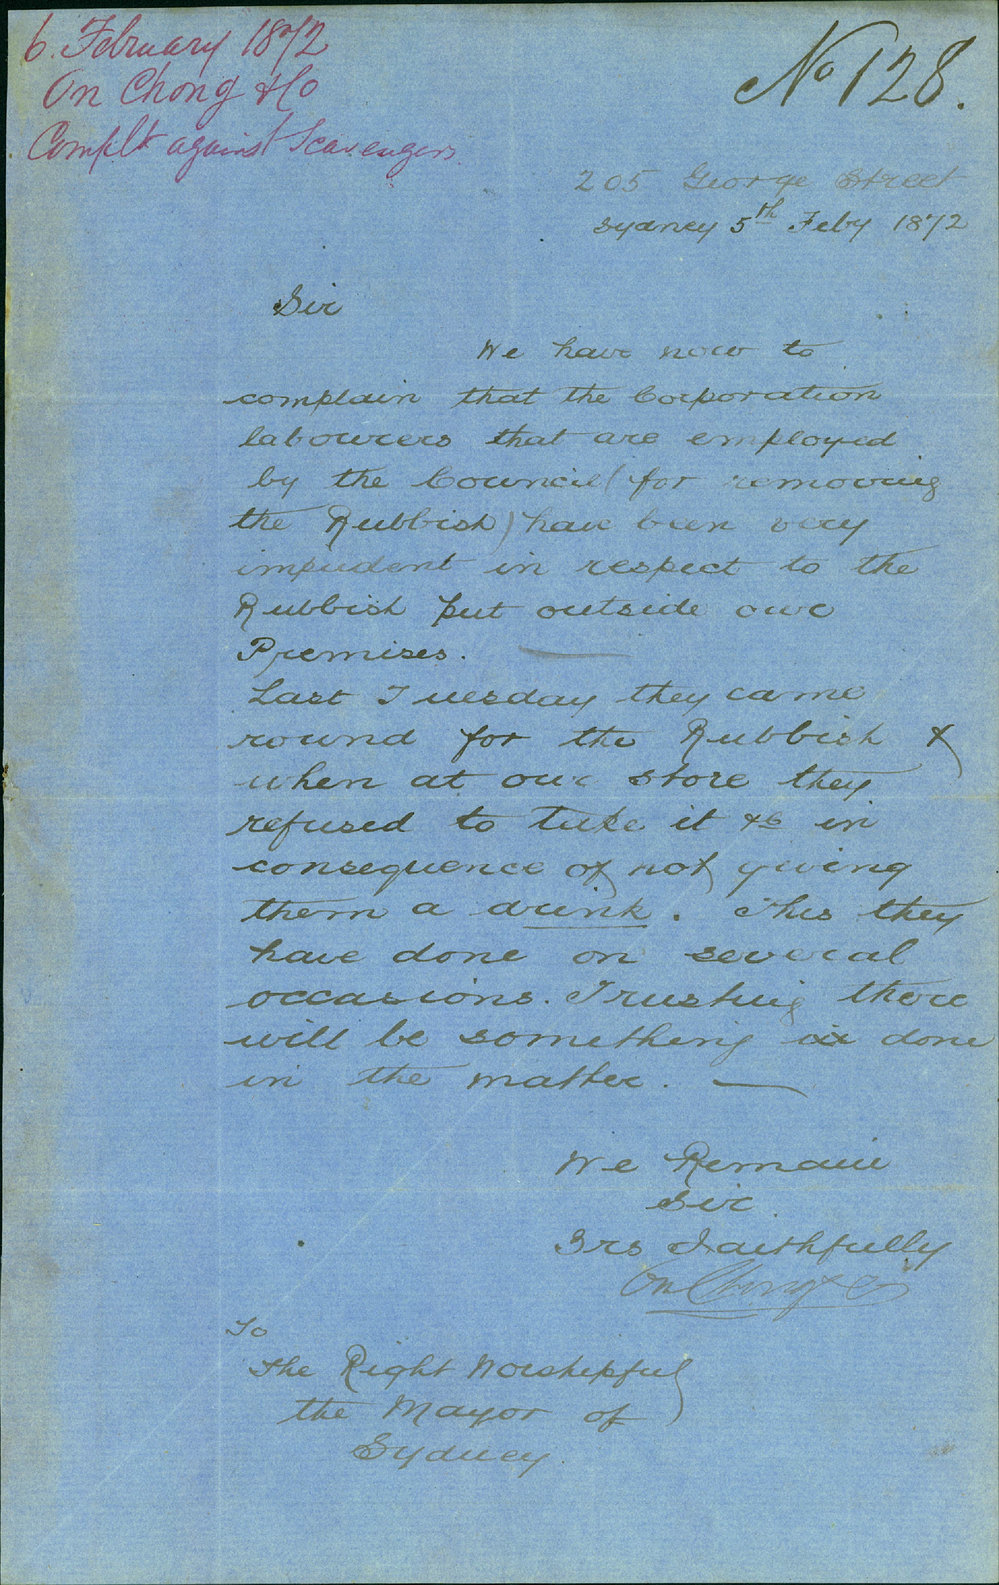 6. February 1872
On Chong & Co
Complt against Scavengers
No 128.
205 George Street
Sydney 5th Feby 1872
Sir
We have now to
complain that the Corporation
labourers that are employed
by the Council (for removing
the Rubbish) have been very
impudent in respect to the
Rubbish put outside our
Premises.
Last Tuesday they came
round for the Rubbish &
when at our store they
refused to take it &c in
consequence of not giving
them a drink. This they
have done on several
occasions. Trusting there
will be something done
in the matter.
We Remain
Sir
Yrs Faithfully
On Chong & Co
To
the Right Worshipful
the Mayor of
Sydney